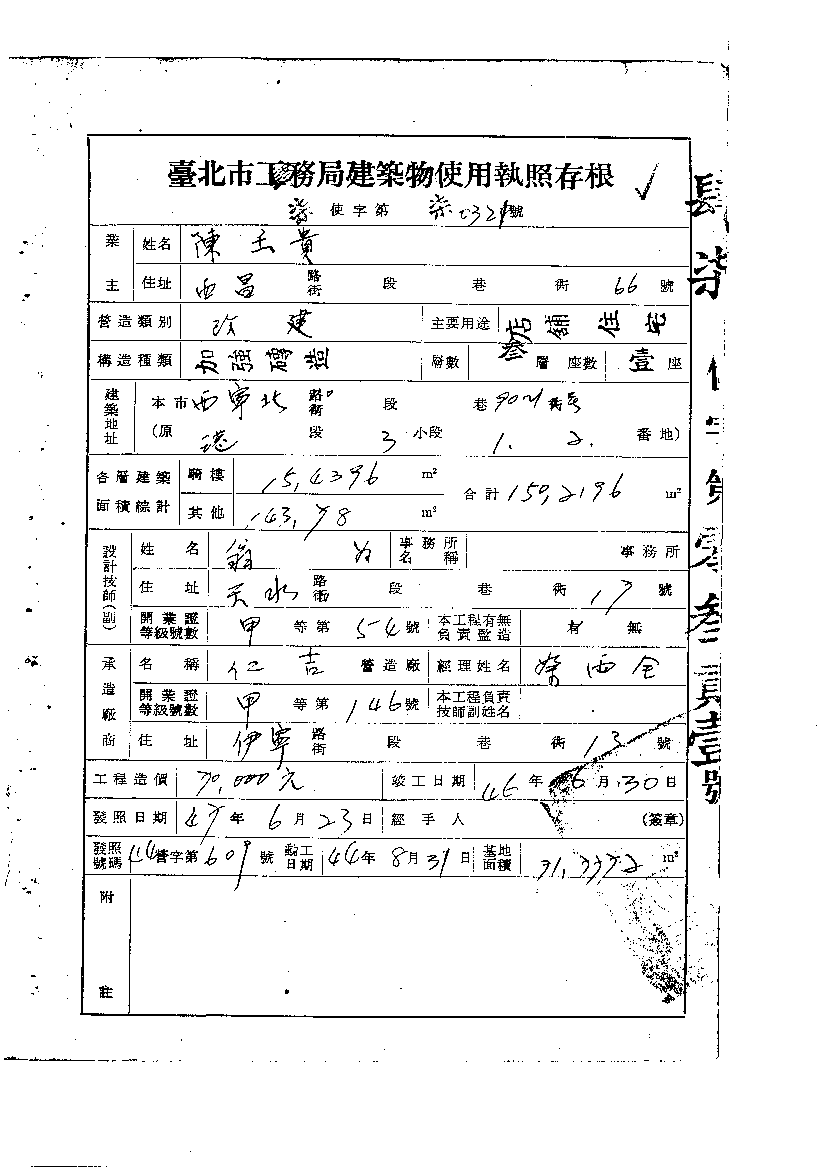 臺北市工務局建築物使用執照存根
使字第 柒0321號
業主 姓名 陳玉貴
住址 西昌 路街 段 巷 衖 66 號
營造類別 改建 主要用途 店鋪住宅
構造種類 加強磚造 層數 參層 座數 壹座
建築地址 本市 西寧北 路街 段 巷 衖
(原 段 3 小段 1. 2. 番地)
各層建築面積綜計 騎樓 15,4396 m² 合計 159,2196 m²
其他 143,78 m²
設計技師(副) 姓名 事務所名稱 事務所
住址 天水 路街 段 巷 衖 17 號
開業證等級號數 甲 等第 54 號 本工程有無負責監造 有 無
承造廠商 名稱 仁吉 營造廠 經理姓名
開業證等級號數 甲 等第 146 號 本工程負責技師副姓名
住址 伊寧 路街 段 巷 衖 13 號
工程造價 70,000元 竣工日期 46年6月30日
發照日期 47年6月23日 經手人 (簽章)
發照號碼 44營字第609號 動工日期 44年8月31日 基地面積 m²
附註
肆柒使字第零參貳壹號